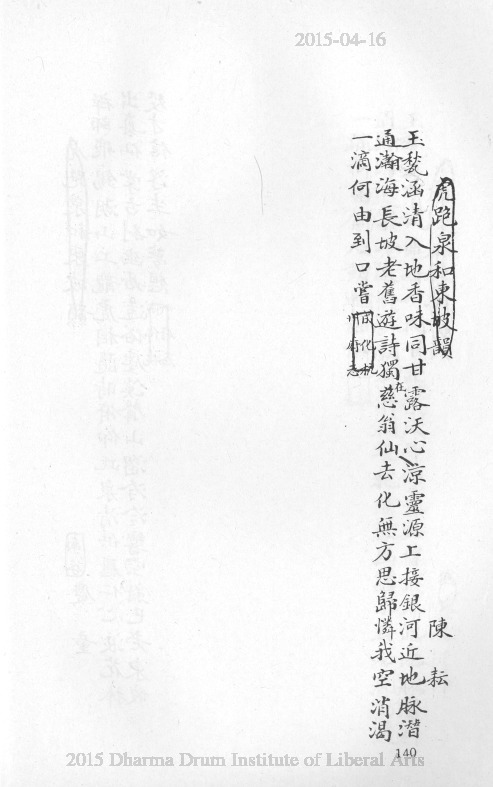 2015-04-16
虎跑泉和東坡韻 陳耘
玉甃涵清入地香味同甘露沃心涼靈源上接銀河近地脉潛
通瀚海長坡老舊遊詩獨在慈翁仙去化無方思歸憐我空消渴
一滴何由到口嘗成化杭州府志
140
2015 Dharma Drum Institute of Liberal Arts